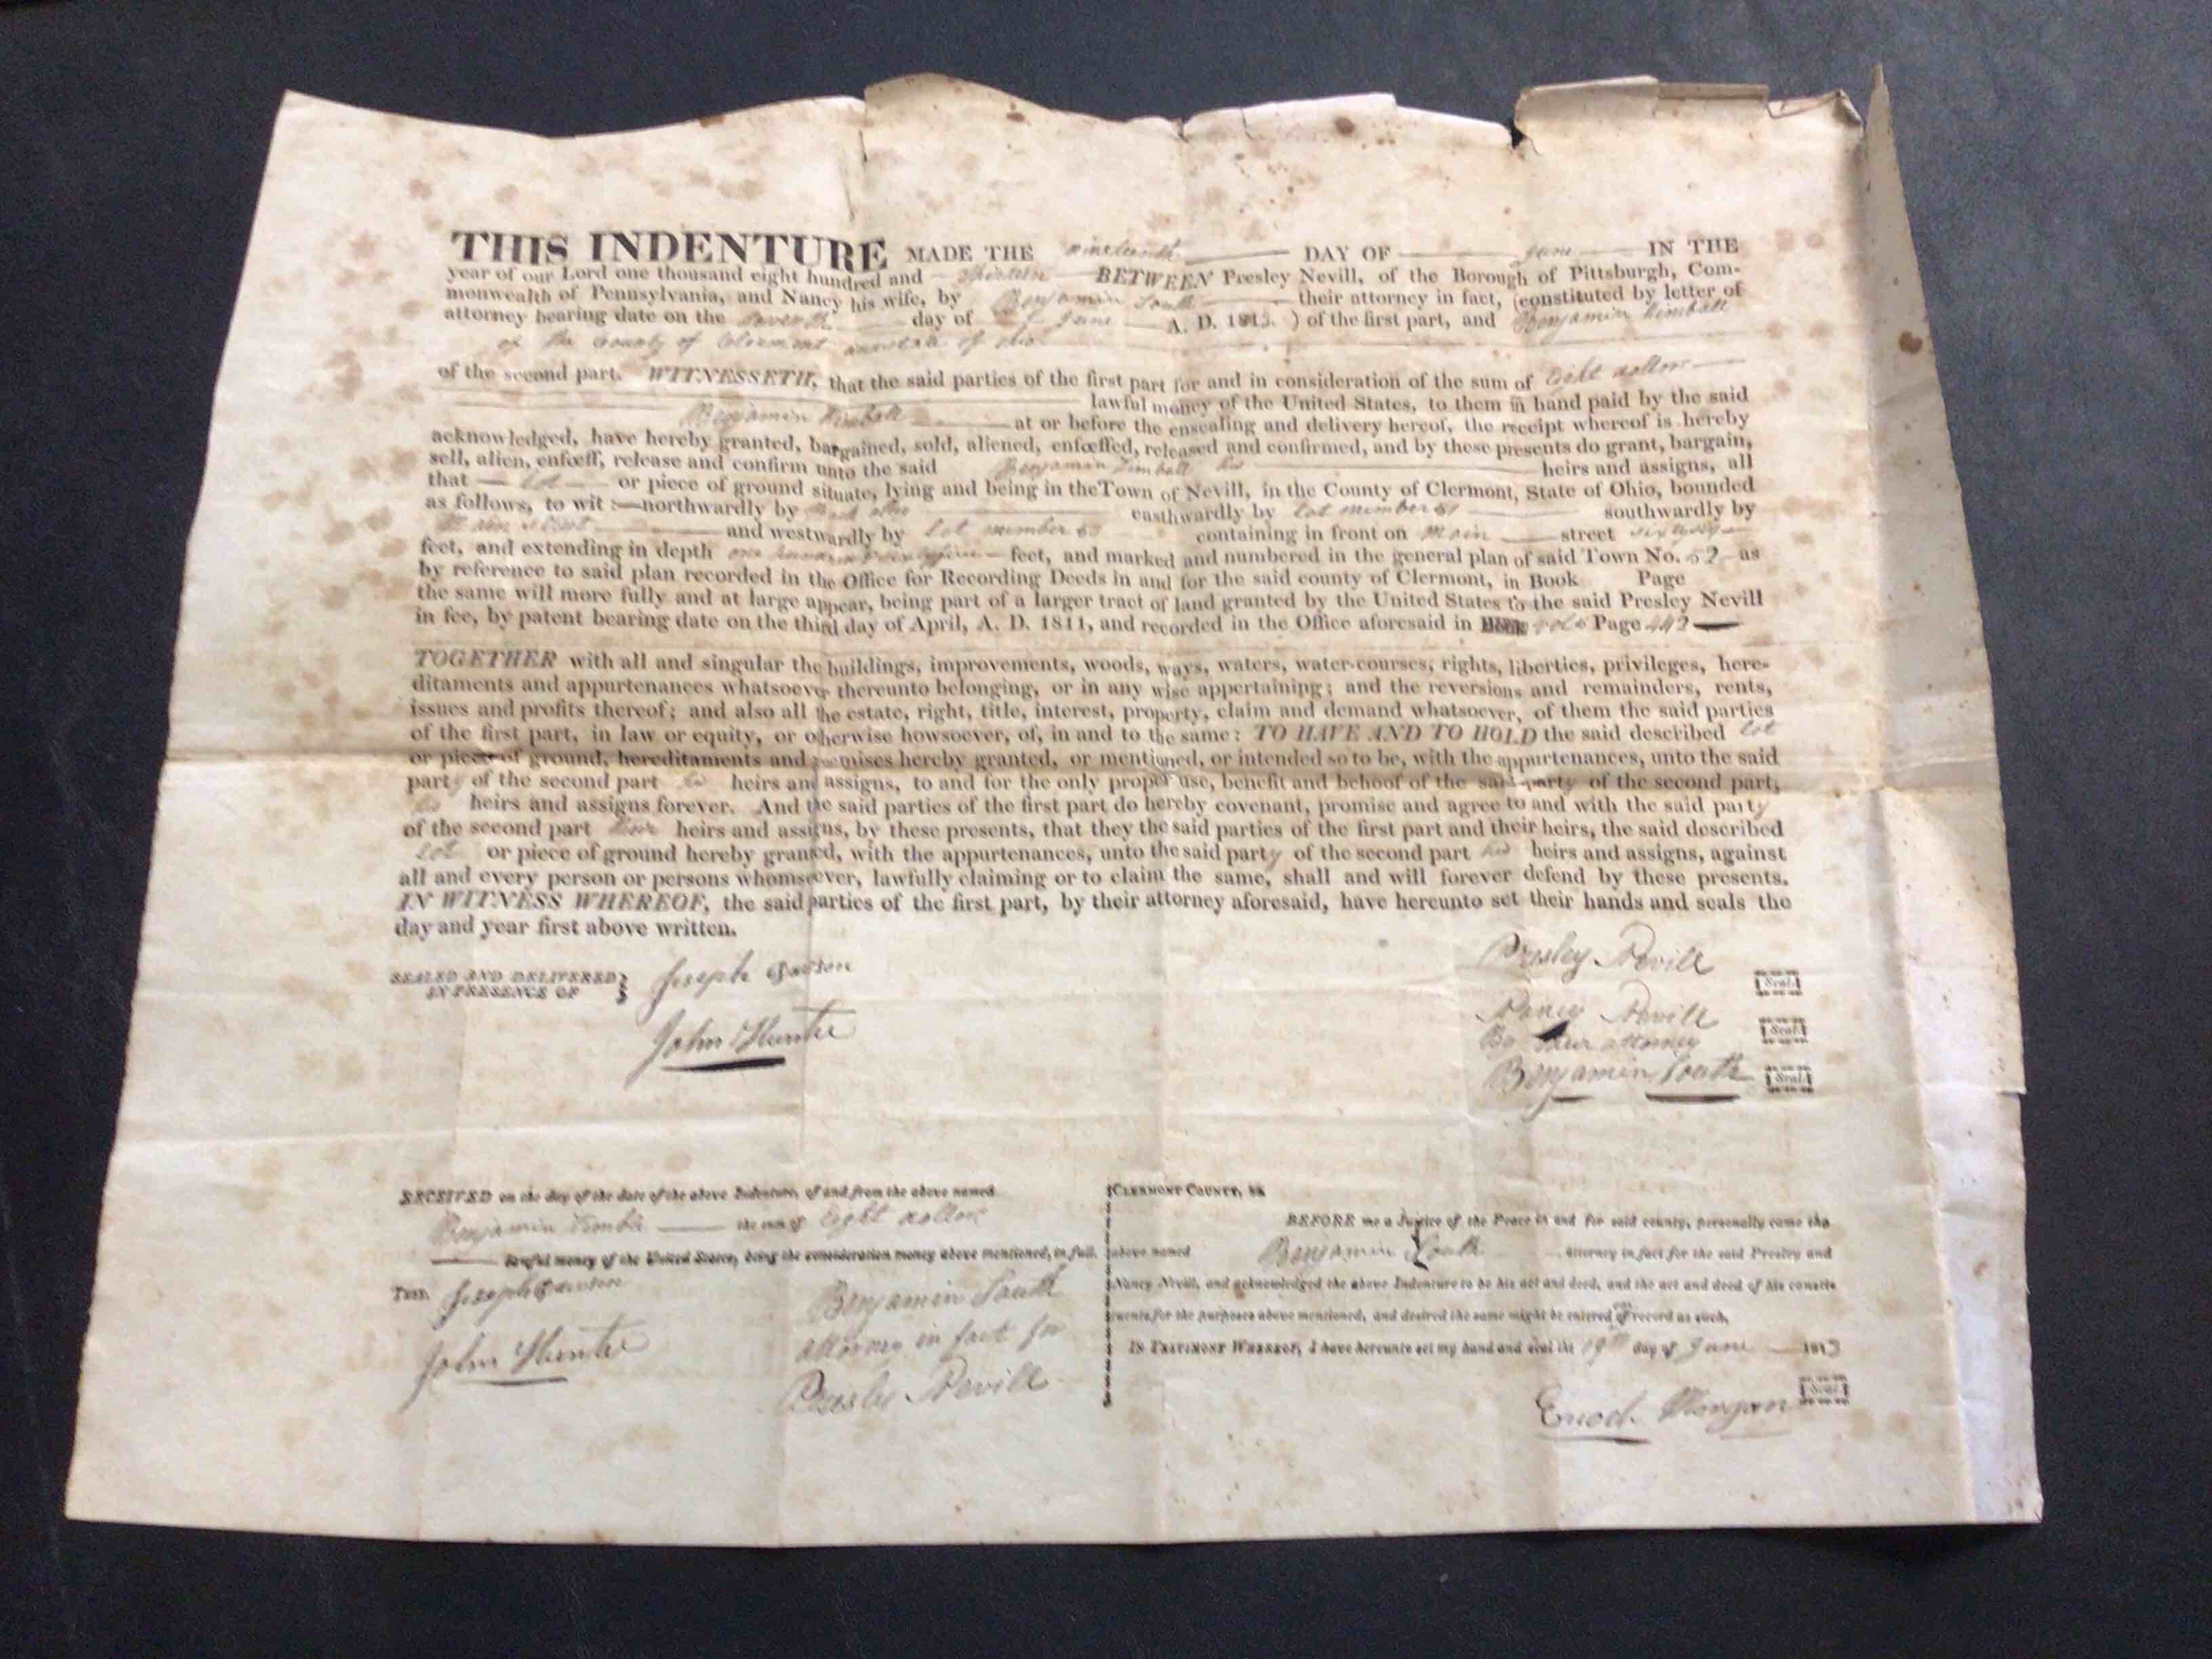 THIS INDENTURE MADE THE nineteenth DAY OF June IN THE
year of our Lord one thousand eight hundred and thirteen BETWEEN Presley Nevill, of the Borough of Pittsburgh, Com-
monwealth of Pennsylvania, and Nancy his wife, by Benjamin South their attorney in fact, (constituted by letter of
attorney bearing date on the seventh day of June A. D. 1813. ) of the first part, and Benjamin Kimball
of the County of Clermont and state of Ohio
of the second part. WITNESSETH, that the said parties of the first part for and in consideration of the sum of Eight dollars
lawful money of the United States, to them in hand paid by the said
Benjamin Kimball at or before the ensealing and delivery hereof, the receipt whereof is hereby
acknowledged, have hereby granted, bargained, sold, aliened, enfœffed, released and confirmed, and by these presents do grant, bargain,
sell, alien, enfœff, release and confirm unto the said Benjamin Kimball his heirs and assigns, all
that lot or piece of ground situate, lying and being in the Town of Nevill, in the County of Clermont, State of Ohio, bounded
as follows, to wit :—northwardly by eastwardly by lot number 51 southwardly by
Main street and westwardly by lot number 53 containing in front on Main street
feet, and extending in depth one hundred feet, and marked and numbered in the general plan of said Town No. 52 as
by reference to said plan recorded in the Office for Recording Deeds in and for the said county of Clermont, in Book Page
the same will more fully and at large appear, being part of a larger tract of land granted by the United States to the said Presley Nevill
in fee, by patent bearing date on the third day of April, A. D. 1811, and recorded in the Office aforesaid in Page 442
TOGETHER with all and singular the buildings, improvements, woods, ways, waters, water-courses, rights, liberties, privileges, here-
ditaments and appurtenances whatsoever thereunto belonging, or in any wise appertaining; and the reversions and remainders, rents,
issues and profits thereof; and also all the estate, right, title, interest, property, claim and demand whatsoever, of them the said parties
of the first part, in law or equity, or otherwise howsoever, of, in and to the same: TO HAVE AND TO HOLD the said described lot
or piece of ground, hereditaments and premises hereby granted, or mentioned, or intended so to be, with the appurtenances, unto the said
party of the second part his heirs and assigns, to and for the only proper use, benefit and behoof of the said party of the second part,
his heirs and assigns forever. And the said parties of the first part do hereby covenant, promise and agree to and with the said party
of the second part their heirs and assigns, by these presents, that they the said parties of the first part and their heirs, the said described
lot or piece of ground hereby granted, with the appurtenances, unto the said party of the second part his heirs and assigns, against
all and every person or persons whomsoever, lawfully claiming or to claim the same, shall and will forever defend by these presents.
IN WITNESS WHEREOF, the said parties of the first part, by their attorney aforesaid, have hereunto set their hands and seals the
day and year first above written.
SEALED AND DELIVERED
IN PRESENCE OF
Joseph
John Hunter
Presley Nevill Seal.
Nancy Nevill Seal.
By their attorney
Benjamin South Seal.
RECEIVED on the day of the date of the above Indenture, of and from the above named
Benjamin Kimble the sum of Eight dollars
lawful money of the United States, being the consideration money above mentioned, in full.
TEST. Joseph
John Hunter
Benjamin South
attorney in fact for
Presley Nevill
CLERMONT COUNTY, SS.
BEFORE me a Justice of the Peace in and for said county, personally came the
above named Benjamin South attorney in fact for the said Presley and
Nancy Nevill, and acknowledged the above Indenture to be his act and deed, and the act and deed of his consti-
tuents for the purposes above mentioned, and desired the same might be entered of record as such.
IN TESTIMONY WHEREOF, I have hereunto set my hand and seal the 19th day of June 1813
Enoch Morgan Seal.